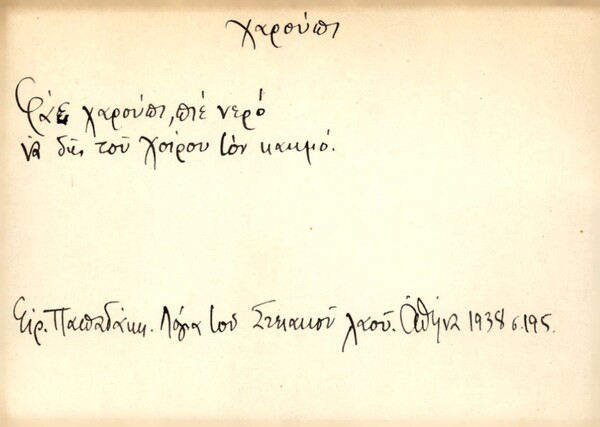 χαρούπι
Φάε χαρούπι, πιέ νερό
νά δῆς τοῦ χοίρου τόν καημό.
Εἰρ. Παπαδάκη. Λόγια τοῦ Στειακοῦ λαοῦ. Ἀθήνα 1938 σ. 195.